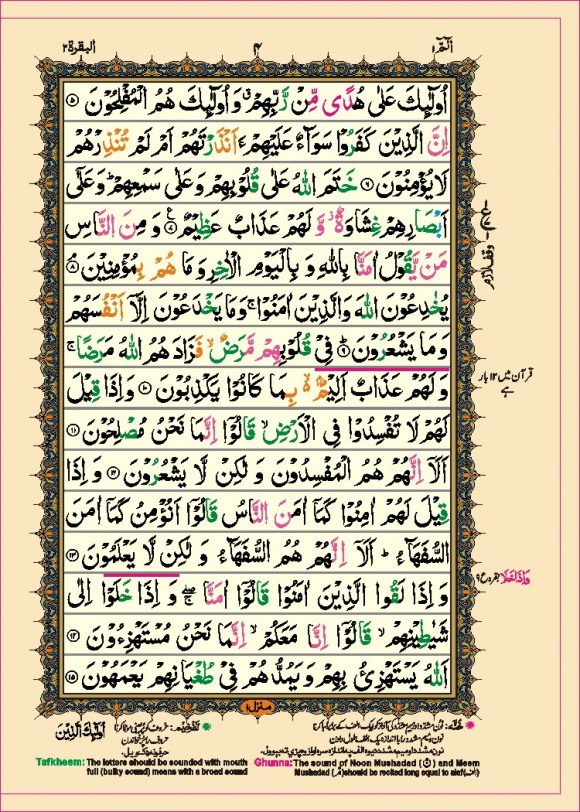 الٓمّٓ ١
۴
البقرة ٢
اُولٰٓئِكَ عَلٰی هُدًی مِّنْ رَّبِّهِمْ ۙ وَ اُولٰٓئِكَ هُمُ الْمُفْلِحُوْنَ ۝۵
اِنَّ الَّذِیْنَ كَفَرُوْا سَوَآءٌ عَلَیْهِمْ ءَاَنْذَرْتَهُمْ اَمْ لَمْ تُنْذِرْهُمْ
لَا یُؤْمِنُوْنَ ۝۶ خَتَمَ اللّٰهُ عَلٰی قُلُوْبِهِمْ وَ عَلٰی سَمْعِهِمْ ؕ وَ عَلٰۤی
اَبْصَارِهِمْ غِشَاوَةٌ ؗ وَّ لَهُمْ عَذَابٌ عَظِیْمٌ ۝۷ وَ مِنَ النَّاسِ
مَنْ یَّقُوْلُ اٰمَنَّا بِاللّٰهِ وَ بِالْیَوْمِ الْاٰخِرِ وَ مَا هُمْ بِمُؤْمِنِیْنَ ۝۸
یُخٰدِعُوْنَ اللّٰهَ وَ الَّذِیْنَ اٰمَنُوْا ۚ وَ مَا یَخْدَعُوْنَ اِلَّاۤ اَنْفُسَهُمْ
وَ مَا یَشْعُرُوْنَ ۝۹ فِیْ قُلُوْبِهِمْ مَّرَضٌ ۙ فَزَادَهُمُ اللّٰهُ مَرَضًا ۚ
وَ لَهُمْ عَذَابٌ اَلِیْمٌۢ ۙ۬ بِمَا كَانُوْا یَكْذِبُوْنَ ۝۱۰ وَ اِذَا قِیْلَ
لَهُمْ لَا تُفْسِدُوْا فِی الْاَرْضِ ۙ قَالُوْۤا اِنَّمَا نَحْنُ مُصْلِحُوْنَ ۝۱۱
اَلَاۤ اِنَّهُمْ هُمُ الْمُفْسِدُوْنَ وَ لٰكِنْ لَّا یَشْعُرُوْنَ ۝۱۲ وَ اِذَا
قِیْلَ لَهُمْ اٰمِنُوْا كَمَاۤ اٰمَنَ النَّاسُ قَالُوْۤا اَنُؤْمِنُ كَمَاۤ اٰمَنَ
السُّفَهَآءُ ؕ اَلَاۤ اِنَّهُمْ هُمُ السُّفَهَآءُ وَ لٰكِنْ لَّا یَعْلَمُوْنَ ۝۱۳
وَ اِذَا لَقُوا الَّذِیْنَ اٰمَنُوْا قَالُوْۤا اٰمَنَّا ۖۚ وَ اِذَا خَلَوْا اِلٰی
شَیٰطِیْنِهِمْ ۙ قَالُوْۤا اِنَّا مَعَكُمْ ۙ اِنَّمَا نَحْنُ مُسْتَهْزِءُوْنَ ۝۱۴
اَللّٰهُ یَسْتَهْزِئُ بِهِمْ وَ یَمُدُّهُمْ فِیْ طُغْیَانِهِمْ یَعْمَهُوْنَ ۝۱۵
وقف لازم
قرآن میں ۱۲ بار
ہے
وَاِذَا خَلَا
منزل ۱
اُولٰٓئِكَ الَّذِیْنَ
Tafkheem: The letters should be sounded with mouth
full (bulky sound) means with a broad sound
Ghunna: The sound of Noon Mushadad (نّ) and Meem
Mushadad (مّ) should be recited long equal to alef(الف)